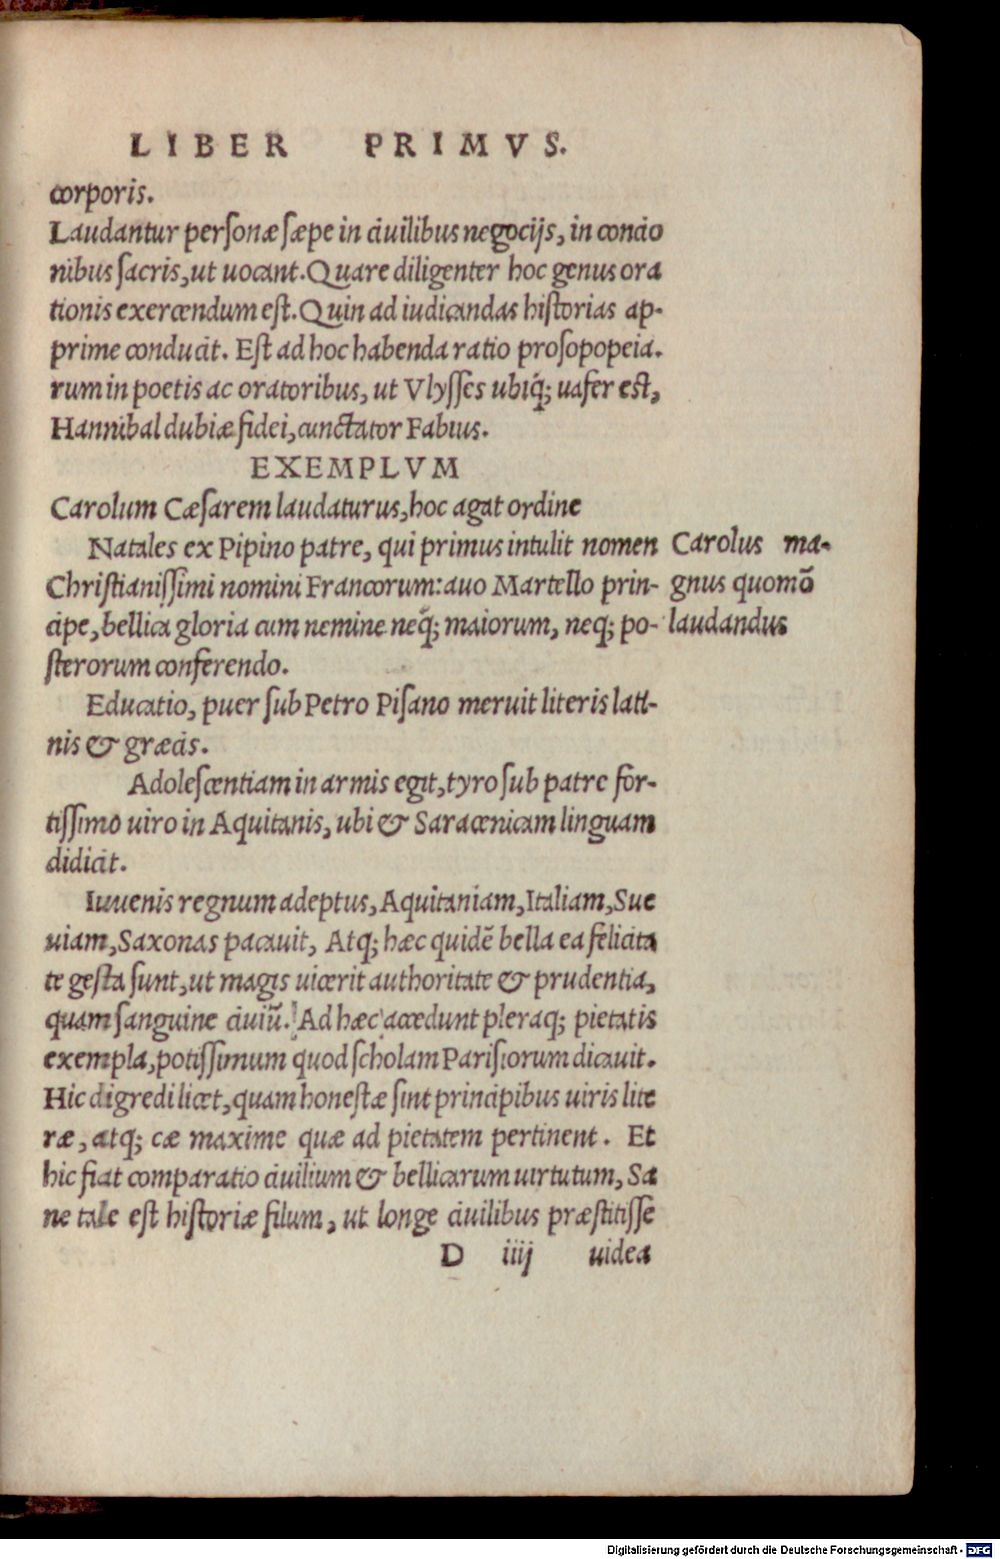 LIBER PRIMVS.
corporis.
Laudantur personæ sæpe in ciuilibus negocijs, in concio
nibus sacris, ut uocant. Quare diligenter hoc genus ora
tionis exercendum est. Quin ad iudicandas historias ap-
prime conducit. Est ad hoc habenda ratio prosopopeia.
rum in poetis ac oratoribus, ut Vlysses ubiq; uafer est,
Hannibal dubiæ fidei, cunctator Fabius.
EXEMPLVM
Carolum Cæsarem laudaturus, hoc agat ordine
Natales ex Pipino patre, qui primus intulit nomen
Christianissimi nomini Francorum: auo Martello prin-
cipe, bellica gloria cum nemine neq; maiorum, neq; po-
sterorum conferendo.
Carolus ma-
gnus quomō
laudandus
Educatio, puer sub Petro Pisano meruit literis lati-
nis & græcis.
Adolescentiam in armis egit, tyro sub patre for-
tissimo uiro in Aquitanis, ubi & Saracenicam linguam
didicit.
Iuuenis regnum adeptus, Aquitaniam, Italiam, Sue
uiam, Saxonas pacauit, Atq; hæc quidē bella ea felicita
te gesta sunt, ut magis uicerit authoritate & prudentia,
quam sanguine ciuiū. Ad hæc accedunt pleraq; pietatis
exempla, potissimum quod scholam Parisiorum dicauit.
Hic digredi licet, quam honestæ sint principibus uiris lite
ræ, atq; cæ maxime quæ ad pietatem pertinent. Et
hic fiat comparatio ciuilium & bellicarum uirtutum, Sa
ne tale est historiæ filum, ut longe ciuilibus præstitisse
D iiij uidea
Digitalisierung gefördert durch die Deutsche Forschungsgemeinschaft - DFG